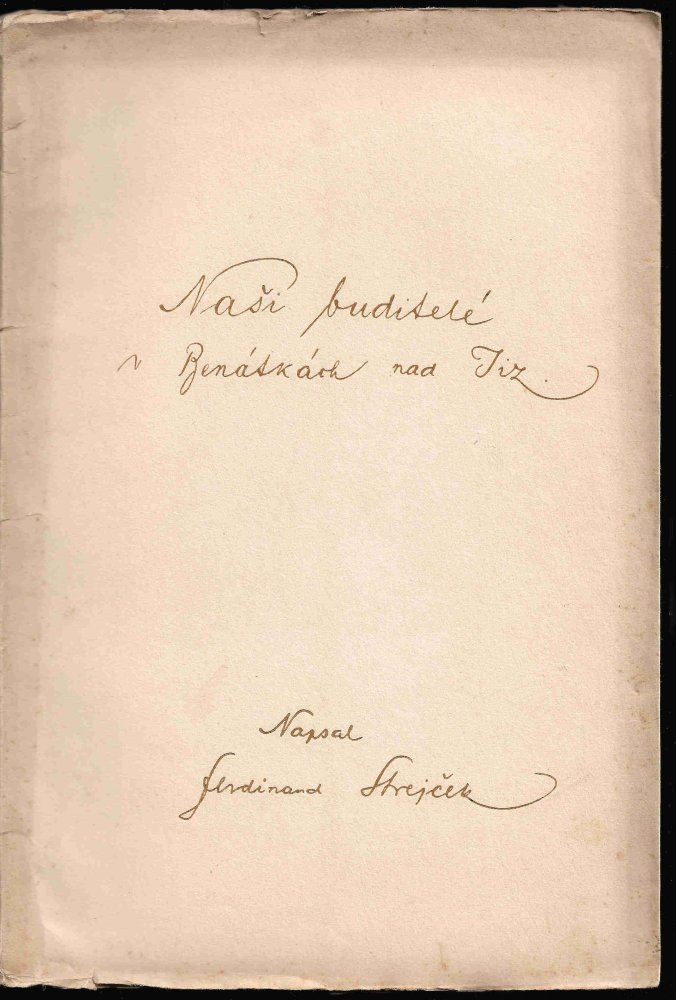 Naši buditelé
v Benátkách nad Jiz.
Napsal
Ferdinand Strejček